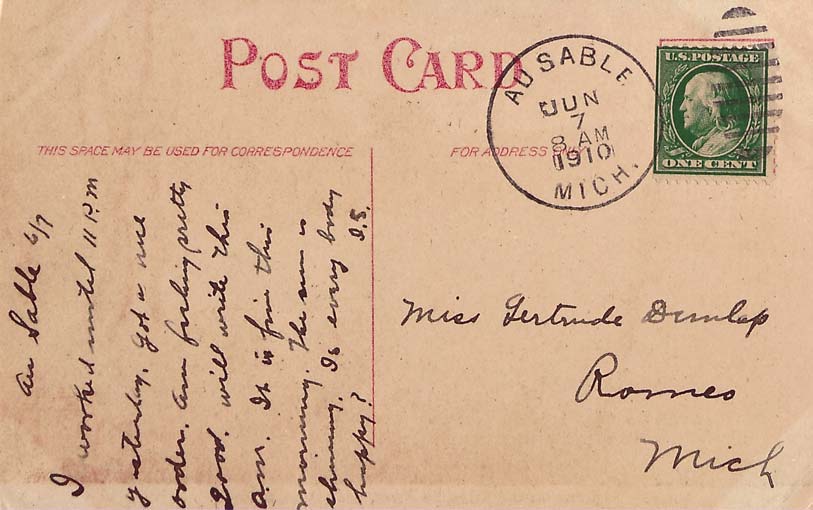 POST CARD
THIS SPACE MAY BE USED FOR CORRESPONDENCE
FOR ADDRESS ONLY
AU SABLE
JUN
7
8 AM
1910
MICH.
U.S. POSTAGE
ONE CENT
Au Sable 6/7
I worked until 11 P.M
yesterday, got a nice
order. am feeling pretty
good. will write this
a.m. It is fine this
morning. The sun is
shining. Is every body
happy? I.S.
Miss Gertrude Dunlap
Romeo
Mich